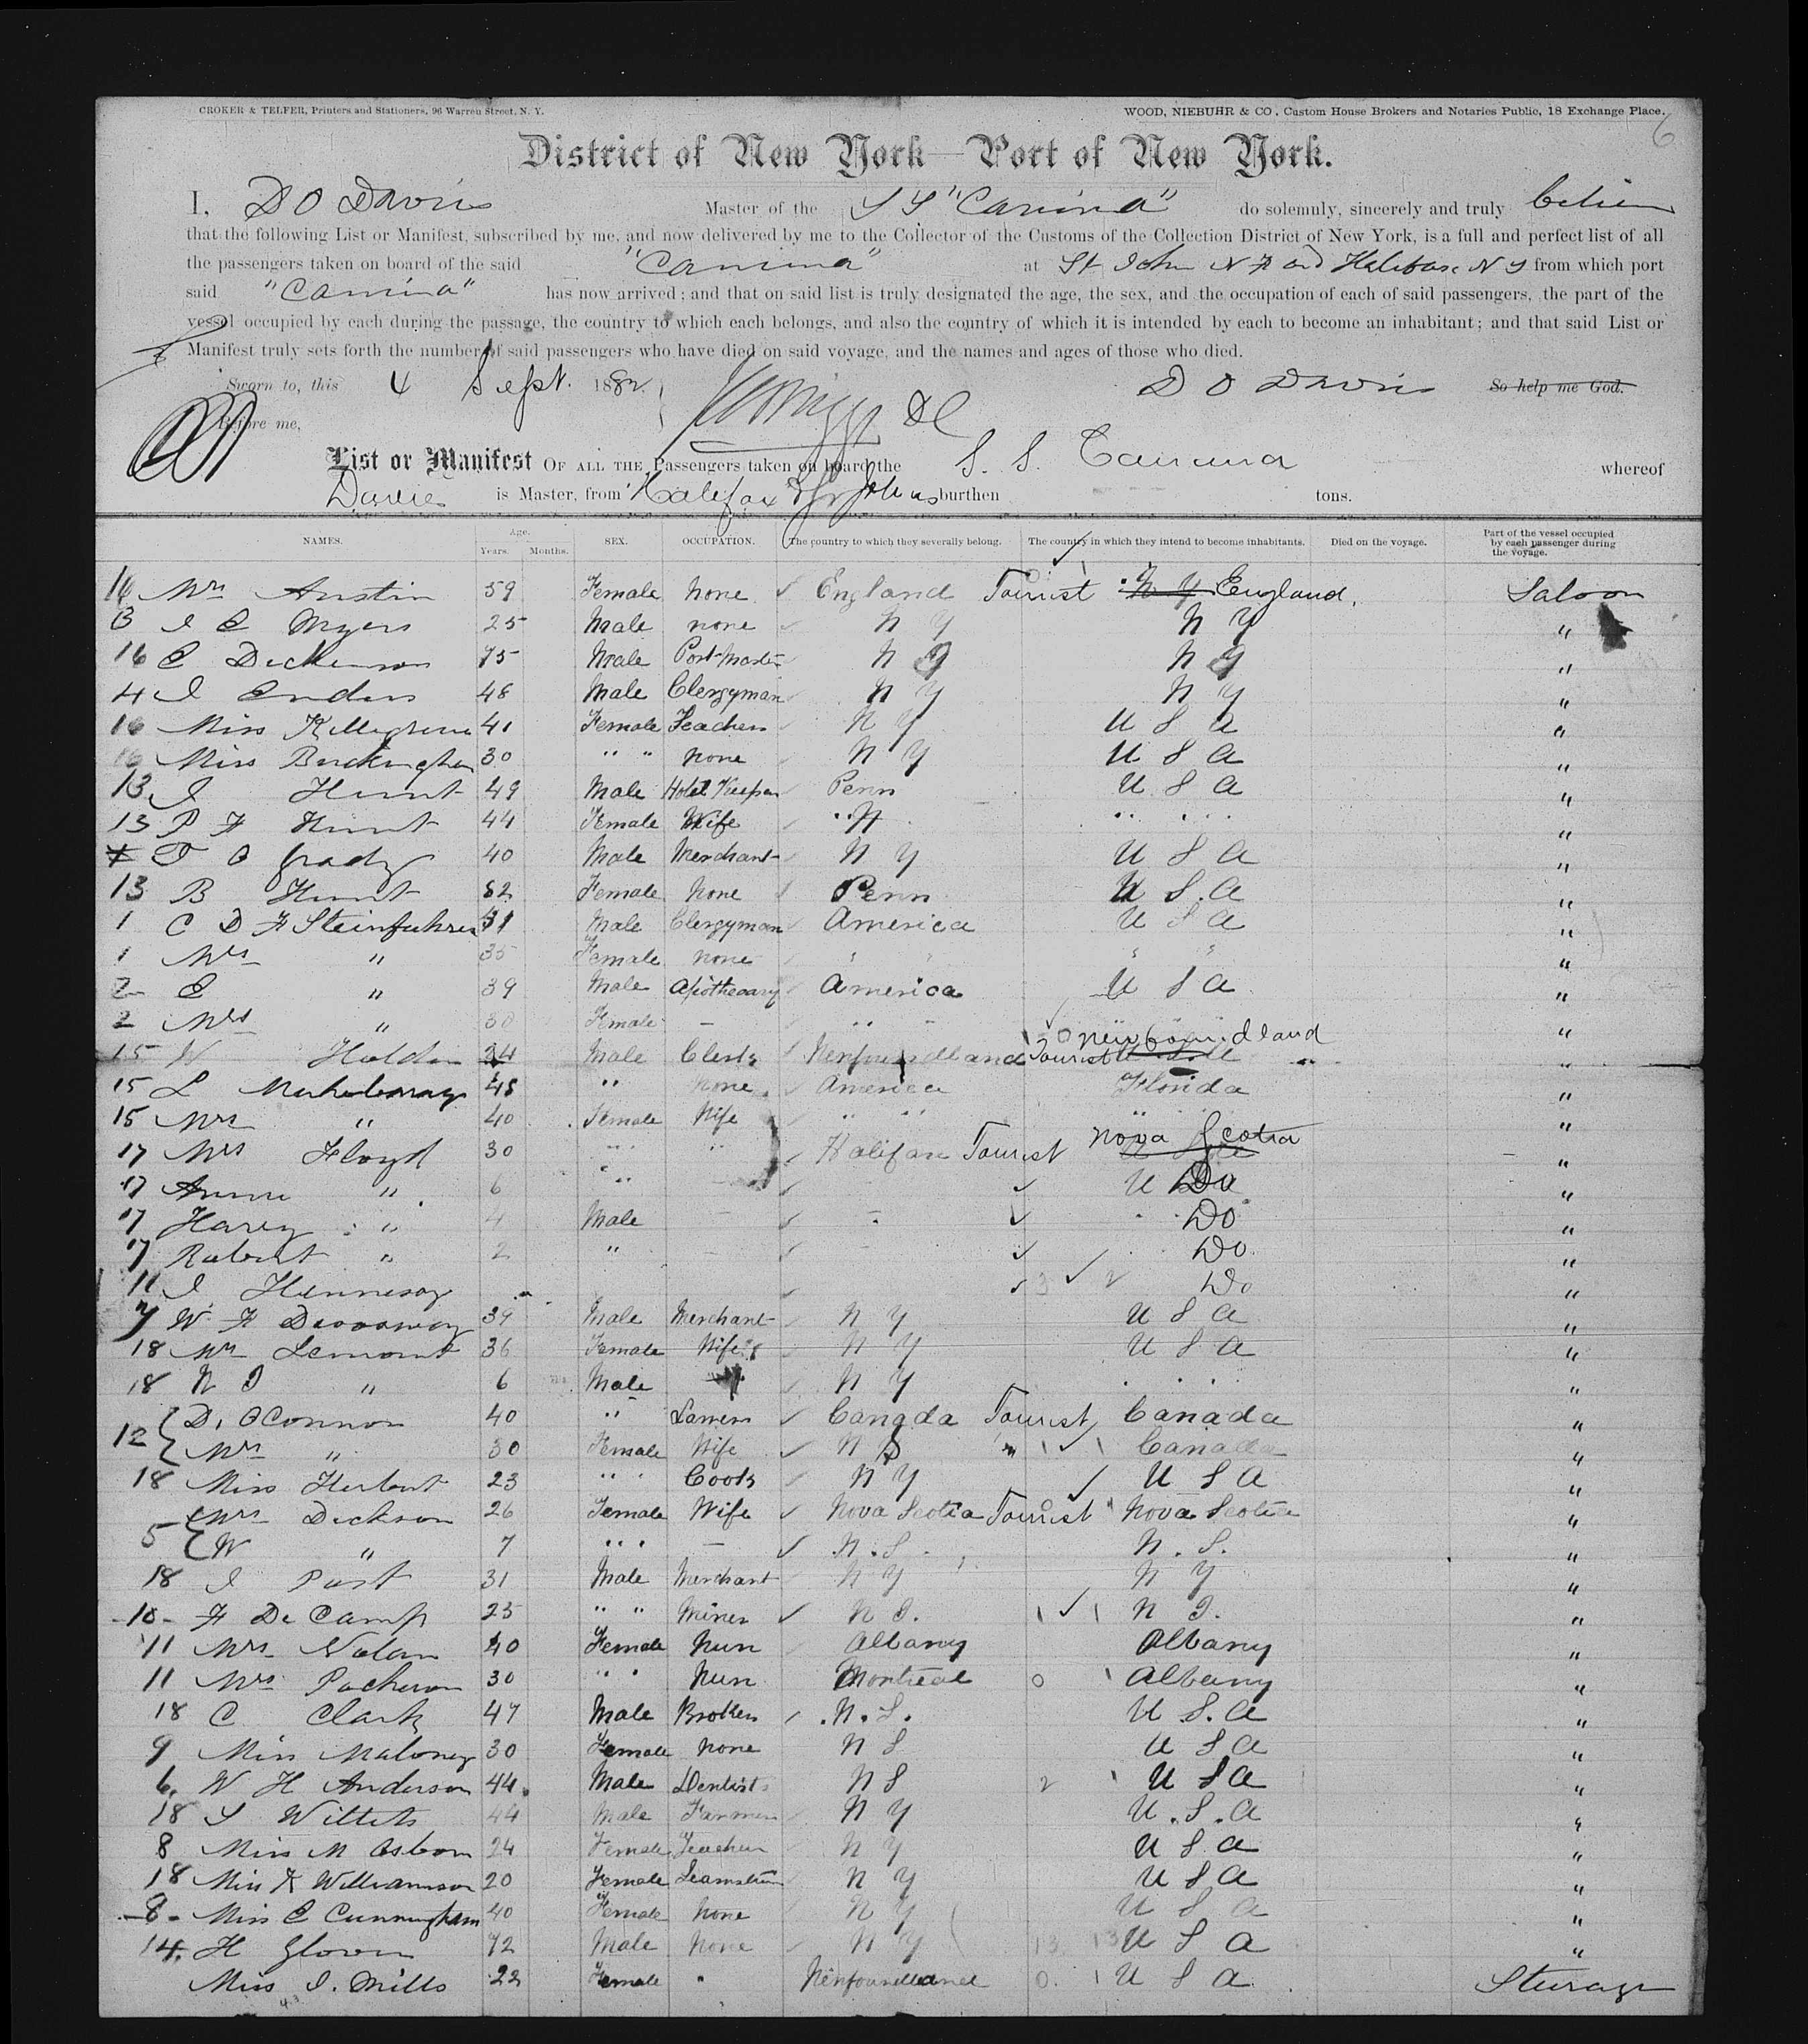 CROKER & TELFER, Printers and Stationers, 96 Warren Street, N. Y. WOOD, NIEBUHR & CO., Custom House Brokers and Notaries Public, 18 Exchange Place.
6
District of New York—Port of New York.
I, D O Davies Master of the S S "Canima" do solemnly, sincerely and truly
that the following List or Manifest, subscribed by me, and now delivered by me to the Collector of the Customs of the Collection District of New York, is a full and perfect list of all
the passengers taken on board of the said "Canima" at St John N F and Halifax N S from which port
said "Canima" has now arrived; and that on said list is truly designated the age, the sex, and the occupation of each of said passengers, the part of the
vessel occupied by each during the passage, the country to which each belongs, and also the country of which it is intended by each to become an inhabitant; and that said List or
Manifest truly sets forth the number of said passengers who have died on said voyage, and the names and ages of those who died.
Sworn to, this 4 Sept. 1882. D O Davies So help me God.
Before me, DC
List or Manifest OF ALL THE Passengers taken on board the S. S. Canima whereof
Davies is Master, from Halifax & St Johns burthen tons.
NAMES. Age. Years. Months. SEX. OCCUPATION. The country to which they severally belong. The country in which they intend to become inhabitants. Died on the voyage. Part of the vessel occupied by each passenger during the voyage.
16 Mrs Austin 59 Female none England Tourist N Y England. Saloon
B Myers 25 Male none N Y N Y "
16 C Dickenson 75 Male Post-Master N Y N Y "
4 J Enders 48 Male Clergyman N Y N Y "
16 Miss 41 Female Teacher N Y U S A "
16 Miss Buckingham 30 " " none N Y U S A "
13 J Hunt 49 Male Hotel Keeper Penn U S A "
13 P F Hunt 44 Female Wife " " "
O Grady 40 Male Merchant N Y U S A "
13 B Hunt 52 Female None Penn U S A "
1 C D F Steinfuhrer Male Clergyman America U S A "
1 Mrs " 35 Female none " " " " "
2 E " 39 Male Apothecary America U S A "
2 Mrs " 30 Female — " " "
15 W Holden 24 Male Clerk Newfoundland Tourist Newfoundland "
15 L 48 " none America Florida "
15 Mrs " 40 Female Wife " " " " "
17 Mrs Floyd 30 " " " Halifax Tourist Nova Scotia "
17 Annie " 6 " " — Do "
17 Harry " 4 Male — - Do "
17 Robert " 2 " — Do "
11 J Hennesay Do "
7 W F 39 Male Merchant N Y U S A "
18 Mrs Lemont 36 Female Wife N Y U S A "
18 N J " 6 Male N Y "
12 { D. OConnor 40 " Canada Tourist Canada "
Mrs " 30 Female Wife N S " Canada "
18 Miss Herbert 23 " " Cook N Y U S A "
5 { Mrs Dickson 26 Female Wife Nova Scotia Tourist Nova Scotia "
W " 7 " " — N. S. N. S. "
18 J Post 31 Male Merchant N Y N Y "
10 F De Camp 25 " " Miner N J. N J. "
11 Mrs Nolan 40 Female Nun Albany Albany "
11 Mrs 30 " " Nun Montreal 0 Albany "
18 C Clark 47 Male Broker N. S. U S. A "
9 Miss Maloney 30 Female none N S U S A "
6. W H Anderson 44 Male Dentist N S 2 U S A "
18 S Willets 44 Male Farmer N Y U. S. A "
8 Miss M Osborn 24 Female Teacher N Y U S A "
18 Miss K Williamson 20 Female Seamstress N Y U S A "
8 Miss E Cunningham 40 Female None N Y U S A "
14. H Glover 72 Male None N Y 13 13 U S A "
Miss J. Mills 22 Female " Newfoundland 0 U S A Steerage